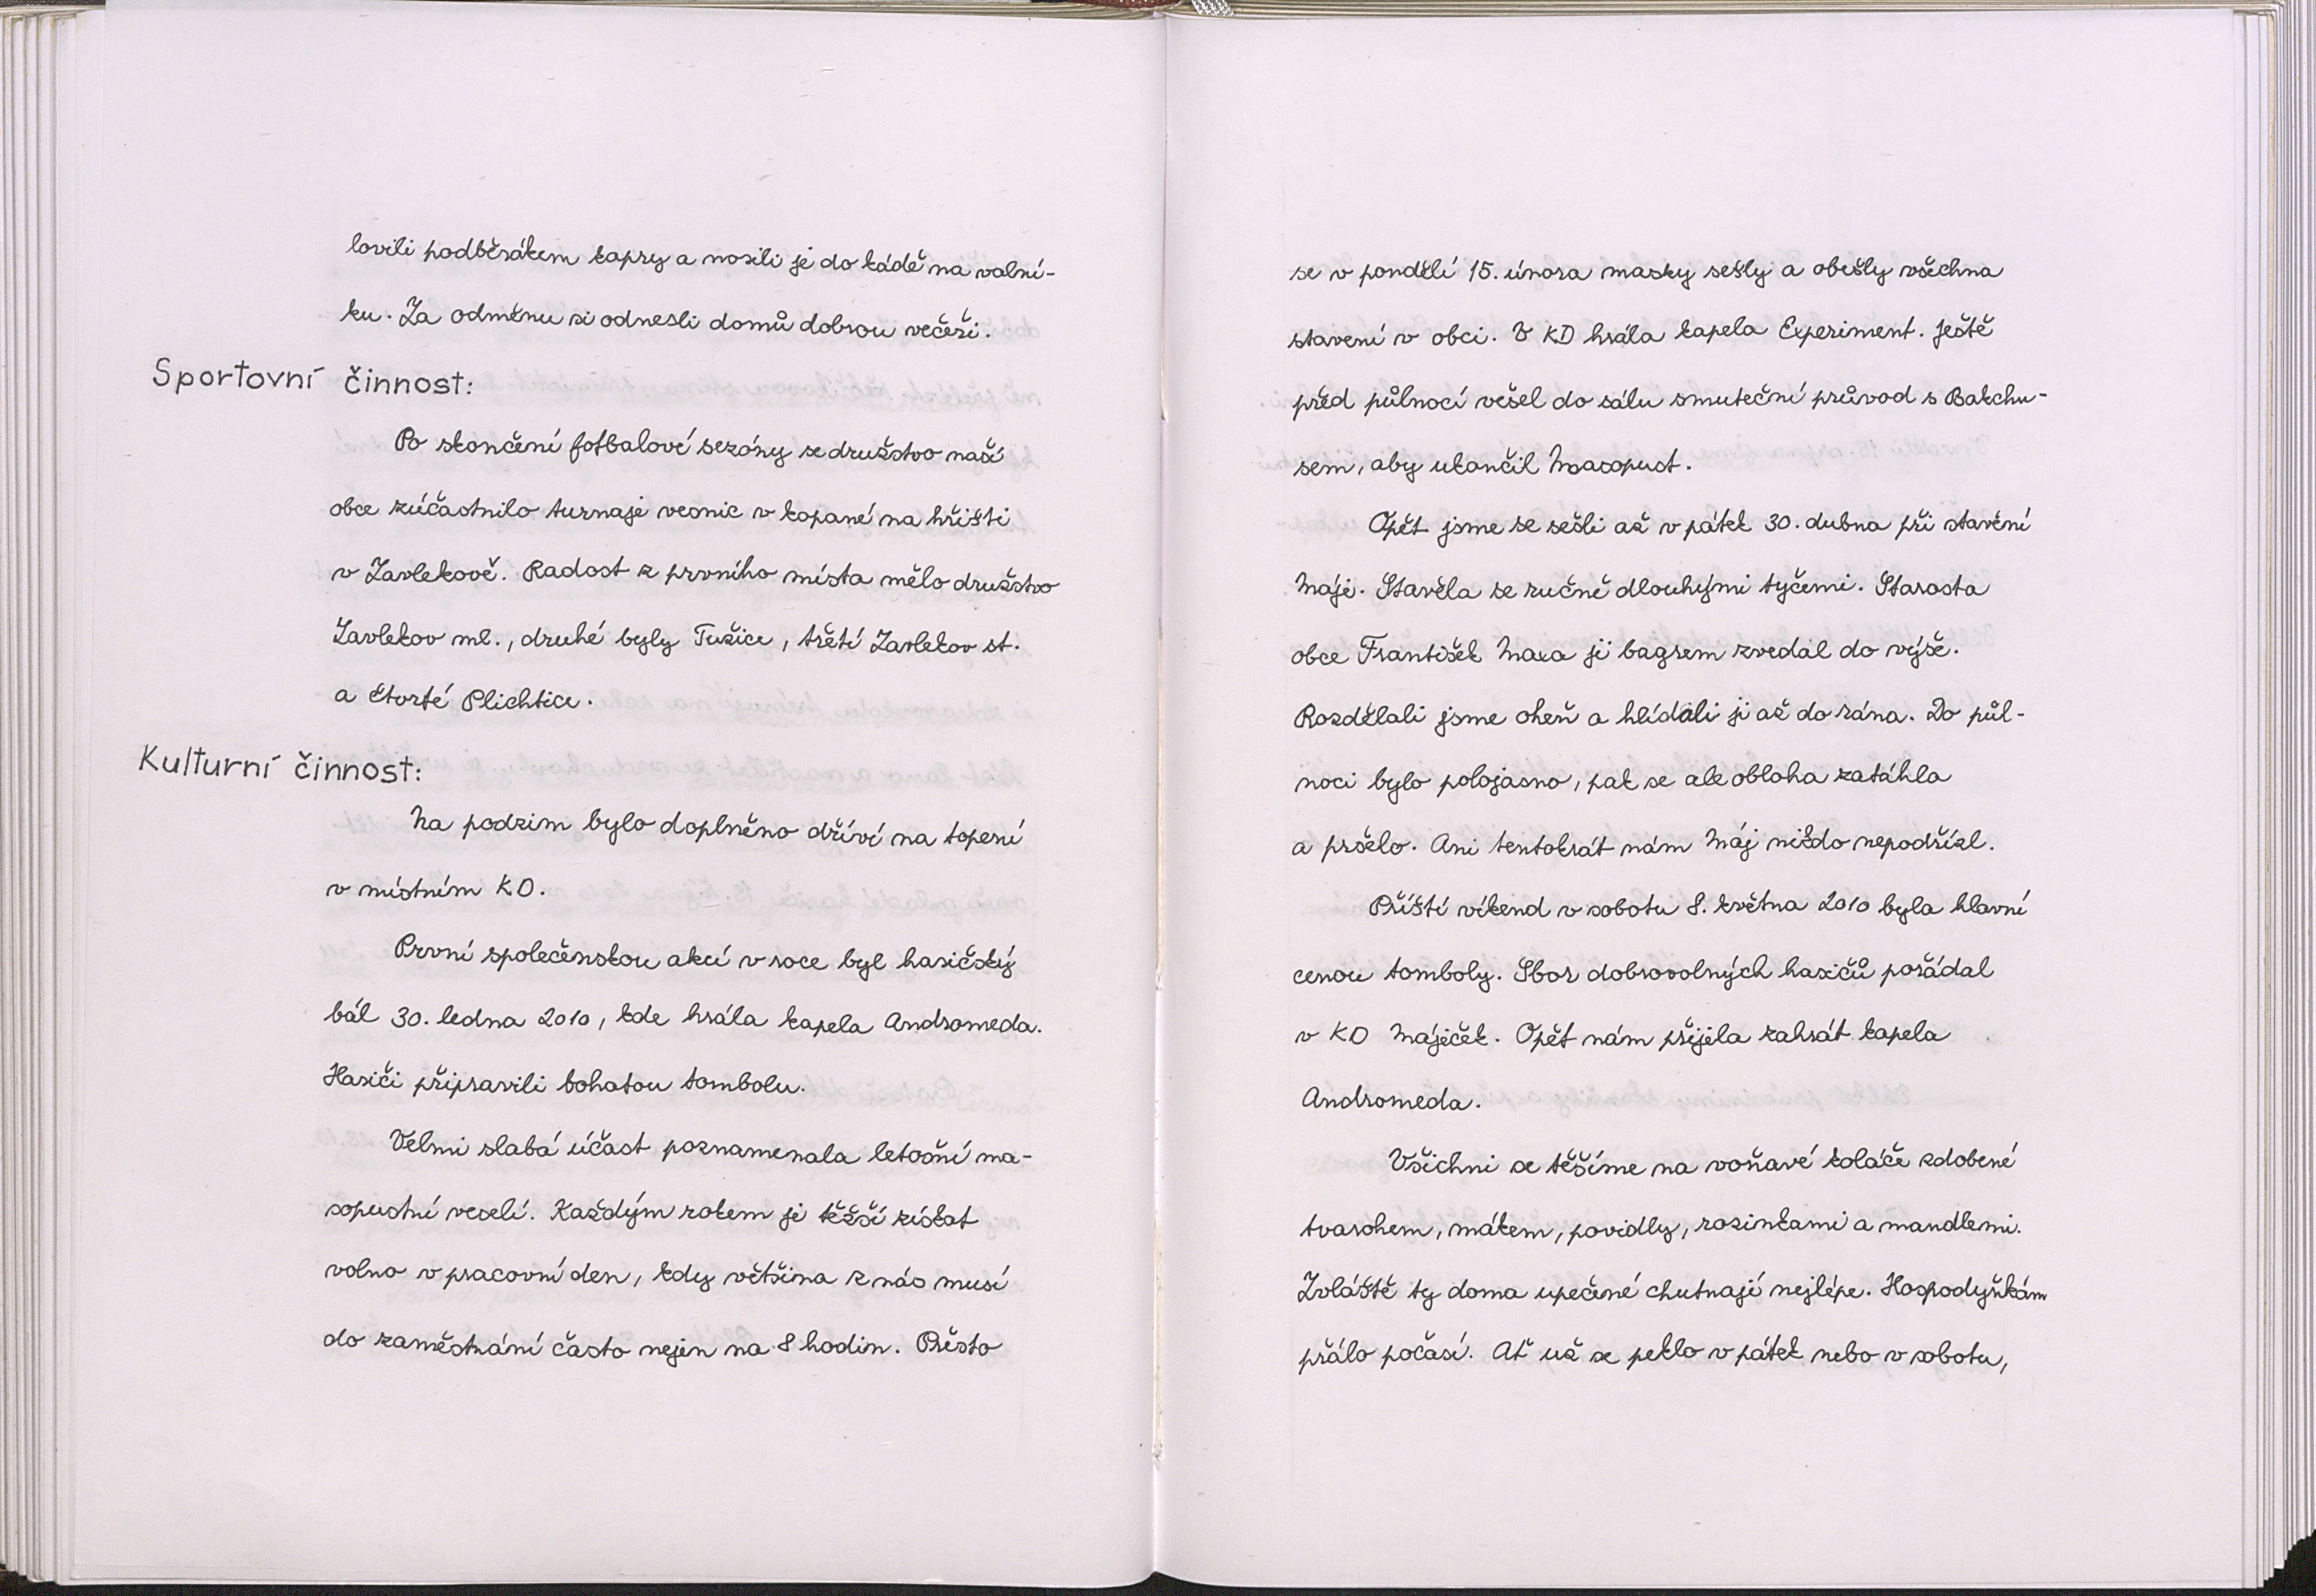 lovili podběrákem kapry a nosili je do kádě na valní-
ku. Za odměnu si odnesli domů dobrou večeři.
Sportovní činnost:
Po skončení fotbalové sezóny se družstvo naší
obce zúčastnilo turnaje vesnic v kopané na hřišti
v Zavlekově. Radost z prvního místa mělo družstvo
Zavlekov ml., druhé byly Tužice, třetí Zavlekov st.
a čtvrté Plichtice.
Kulturní činnost:
Na podzim bylo doplněno dříví na topení
v místním KD.
První společenskou akcí v roce byl hasičský
bál 30. ledna 2010, kde hrála kapela Andromeda.
Hasiči připravili bohatou tombolu.
Velmi slabá účast poznamenala letošní ma-
sopustní veselí. Každým rokem je těžší získat
volno v pracovní den, kdy většina z nás musí
do zaměstnání často nejen na 8 hodin. Přesto
se v pondělí 15. února masky sešly a obešly všechna
stavení v obci. V KD hrála kapela Experiment. Ještě
před půlnocí vešel do sálu smuteční průvod s Bakchu-
sem, aby ukončil Masopust.
Opět jsme se sešli až v pátek 30. dubna při stavění
Máje. Stavěla se ručně dlouhými tyčemi. Starosta
obce František Maxa ji bagrem zvedal do výše.
Rozdělali jsme oheň a hlídali ji až do rána. Do půl-
noci bylo polojasno, pak se ale obloha zatáhla
a pršelo. Ani tentokrát nám Máj nikdo nepodřízl.
Příští víkend v sobotu 8. května 2010 byla hlavní
cenou tomboly. Sbor dobrovolných hasičů pořádal
v KD Máječek. Opět nám přijela zahrát kapela
Andromeda.
Všichni se těšíme na voňavé koláče zdobené
tvarohem, mákem, povidly, rozinkami a mandlemi.
Zvláště ty doma upečené chutnají nejlépe. Hospodyňkám
přálo počasí. Ať už se peklo v pátek nebo v sobotu,